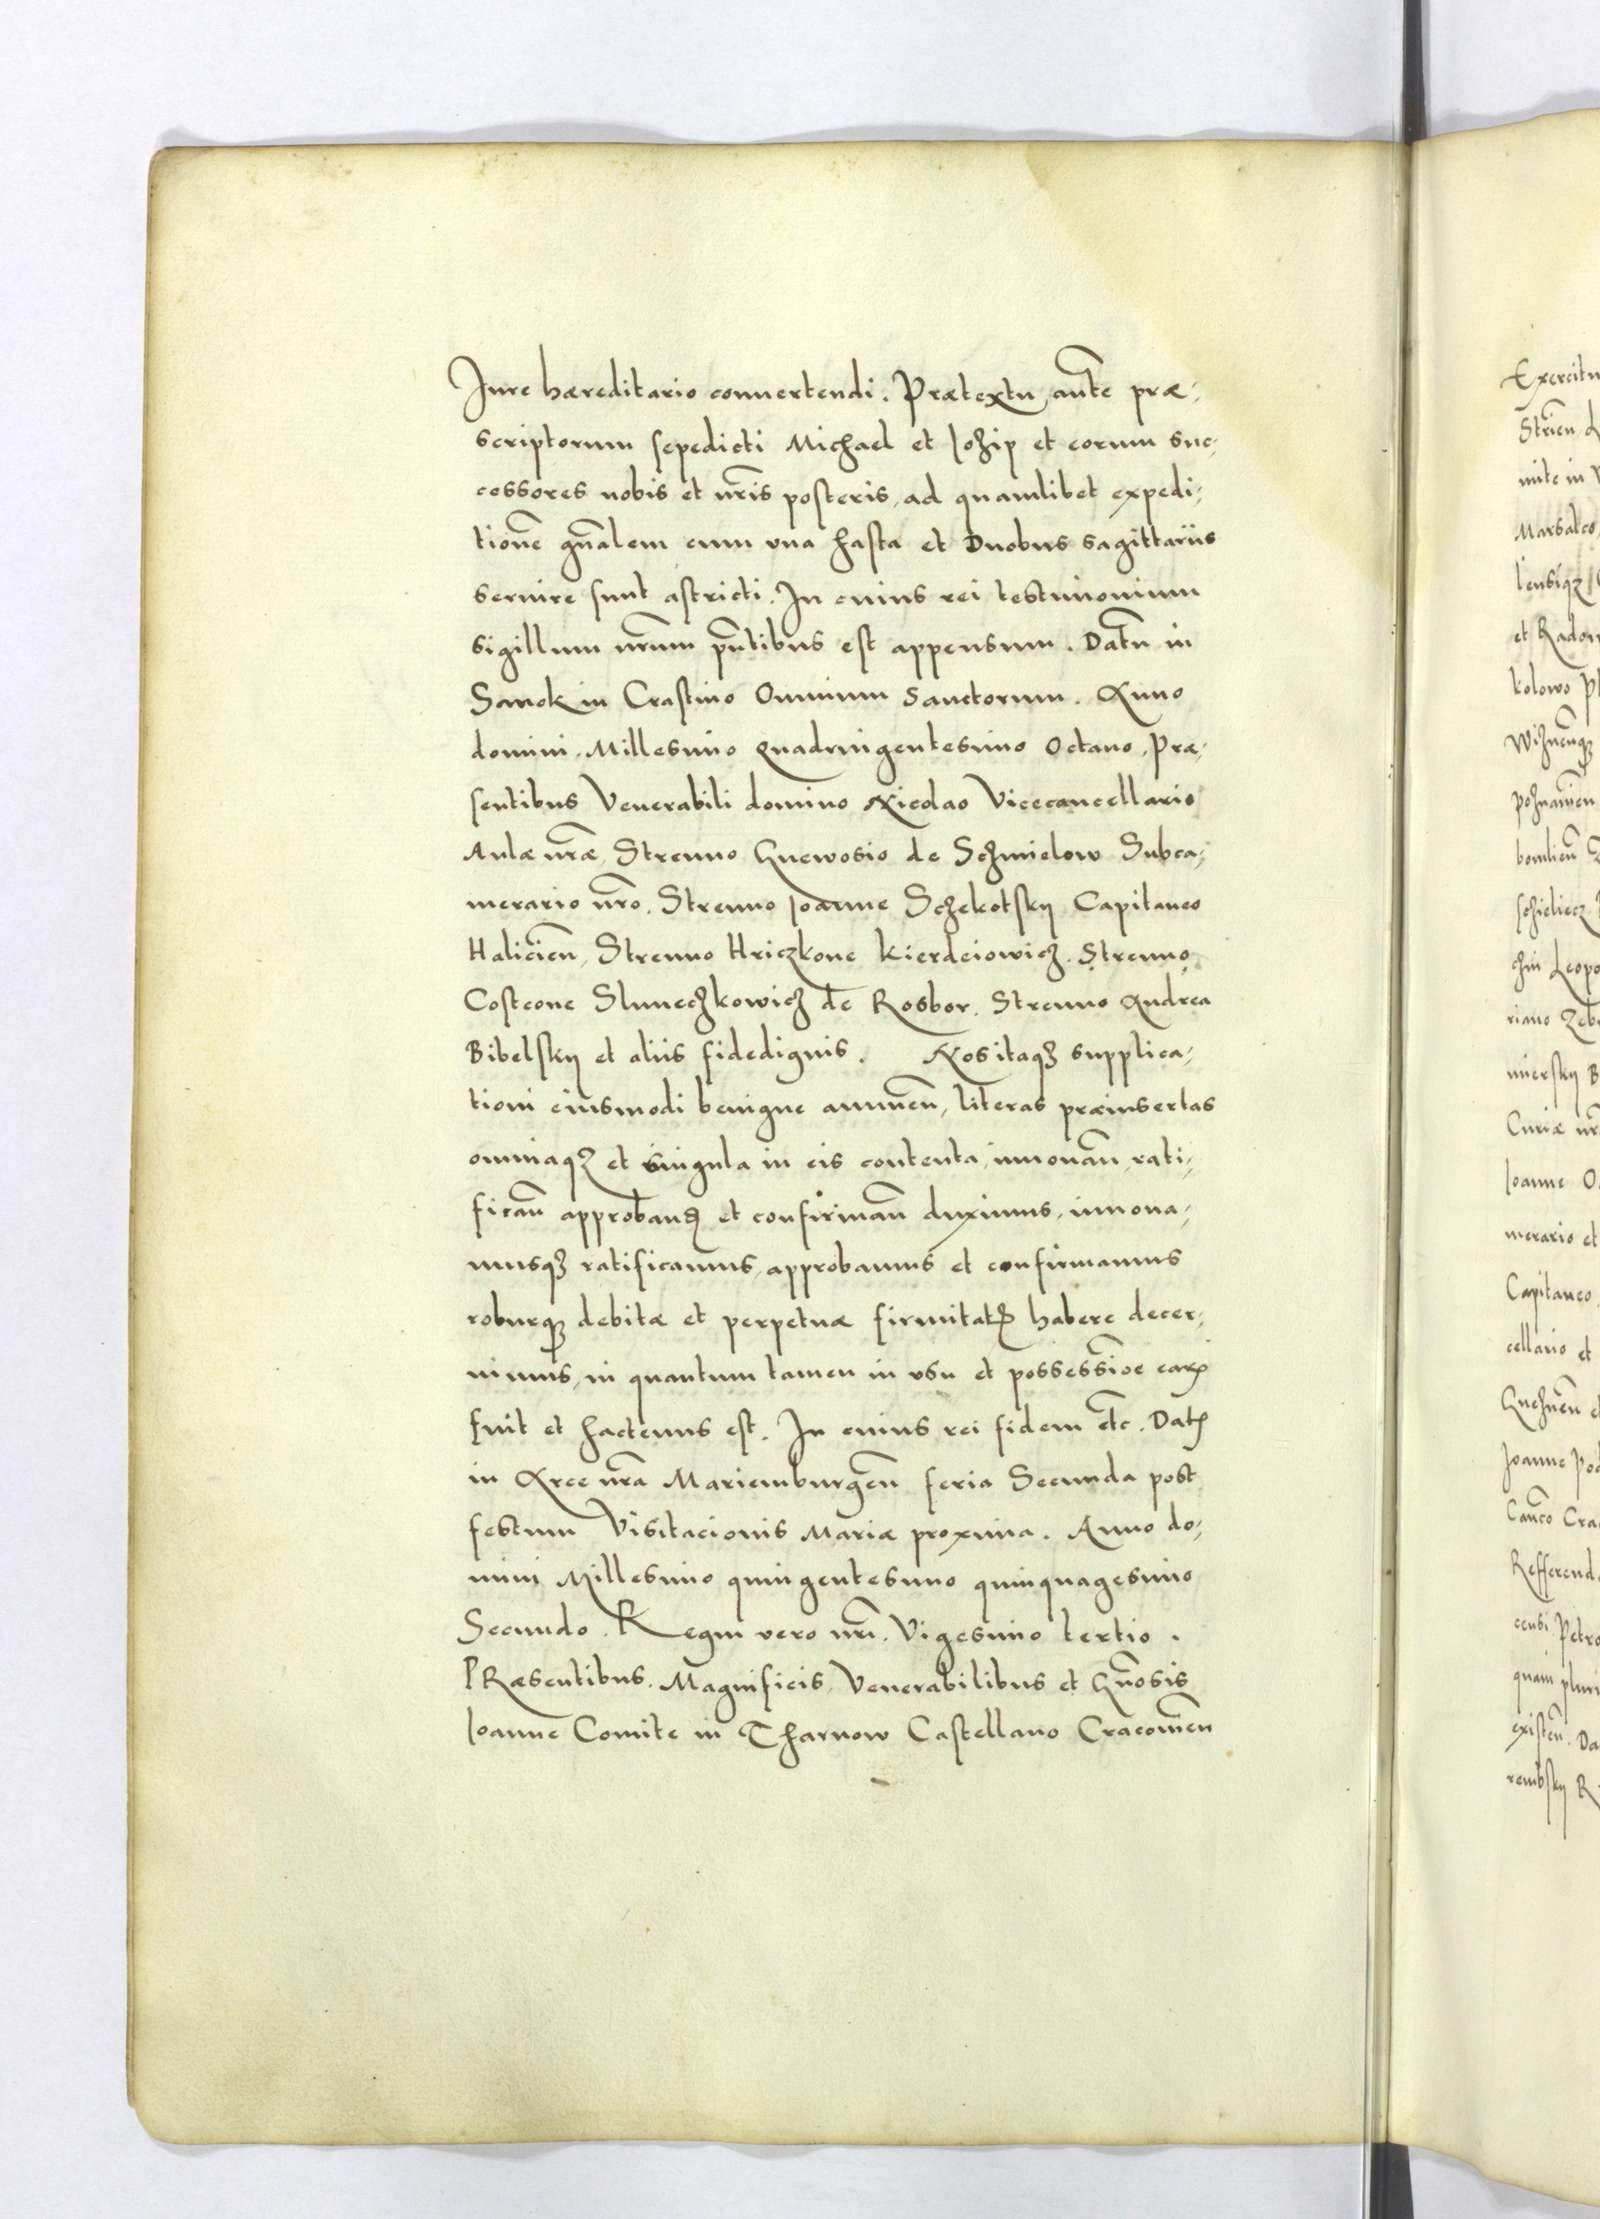 Jure hæreditario conuertendi. Prætextu, aute præ-
scriptorum sepedicti Michael et Johip et eorum suc-
cessores nobis et nris posteris, ad quamlibet expedi-
tione gnalem cum vna hasta et Duobus sagittariis
seruire sunt astricti. In cuius rei testimonium
sigillum nrum pntibus est appensum. Datu in
Sanok in Crastino Omnium Sanctorum. Anno
domini. Millesimo Quadringentesimo Octauo, Præ-
sentibus Venerabili domino Nicolao Vicecancellario
Aulæ nræ, Strenuo Gnewosio de Schmielow Subca-
merario nro. Strenuo Joanne Schekotskij Capitaneo
Halicien, Strenuo Hriczkone Kierdeiowich. Strenuo
Costcone Slunechkowich de Rosbor. Strenuo Andrea
Bibelskij et aliis fidedignis. Nos itaqz supplica-
tioni eiusmodi benigne annuen, literas præinsertas
omniaqz et singula in eis contenta, innouan, rati-
fican approband et confirman duximus, innoua-
musqz ratificamus, approbamus et confirmamus
roburqz debitæ et perpetuæ firmitatis habere decer-
nimus, in quantum tamen in vsu et possessioe earum
fuit et hactenus est. In cuius rei fidem etc. Datum
in Arce nra Mariemburgen feria Secunda post
festum Visitacionis Mariæ proxima. Anno do-
mini Millesimo quingentesimo quinquagesimo
Secundo. Regni vero nri. Vigesimo tertio.
PRæsentibus. Magnificis, Venerabilibus et Gnosis
Joanne Comite in Tharnow Castellano Cracouien
Exercitu
Strien
mite in
Marsalco,
lensiqz
et Radom
kolowo
Wiznenqz
poznanien
Leopo
riano Zeb
mierskij B
Curiæ nr
Joanne O
merario et
Capitaneo,
cellario et
Gneznen et
Joanne Pod
Canco Cra
Refferend
censi Petro
quam pluri
existen. Da
rembskij R